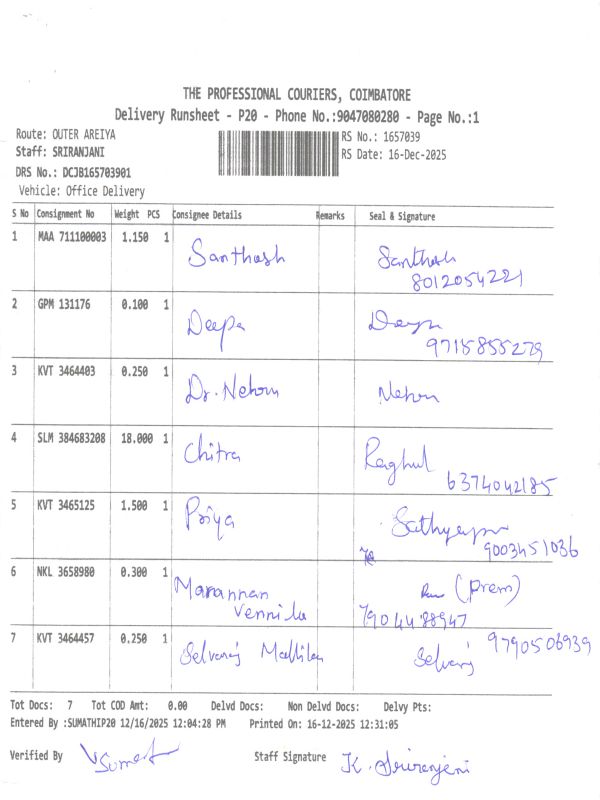 THE PROFESSIONAL COURIERS, COIMBATORE
Delivery Runsheet - P20 - Phone No.:9047080280 - Page No.:1
Route: OUTER AREIYA
RS No.: 1657039
Staff: SRIRANJANI
RS Date: 16-Dec-2025
DRS No.: DCJB165703901
Vehicle: Office Delivery
S No Consignment No Weight PCS Consignee Details Remarks Seal & Signature
1 MAA 711100003 1.150 1 Santhosh Santhosh
8012054221
2 GPM 131176 0.100 1 Deepa Deepa
9715855279
3 KVT 3464403 0.250 1 Dr. Nehru Nehru
4 SLM 384683208 18.000 1 Chitra Raghul
6374042185
5 KVT 3465125 1.500 1 Priya
9003451036
6 NKL 3658980 0.300 1 Marannan (Prem)
Vennila 7904488947
7 KVT 3464457 0.250 1 Selvaraj 9790506939
Selvaraj
Tot Docs: 7 Tot COD Amt: 0.00 Delvd Docs: Non Delvd Docs: Delvy Pts:
Entered By :SUMATHIP20 12/16/2025 12:04:28 PM Printed On: 16-12-2025 12:31:05
Verified By Staff Signature K. Sriranjani